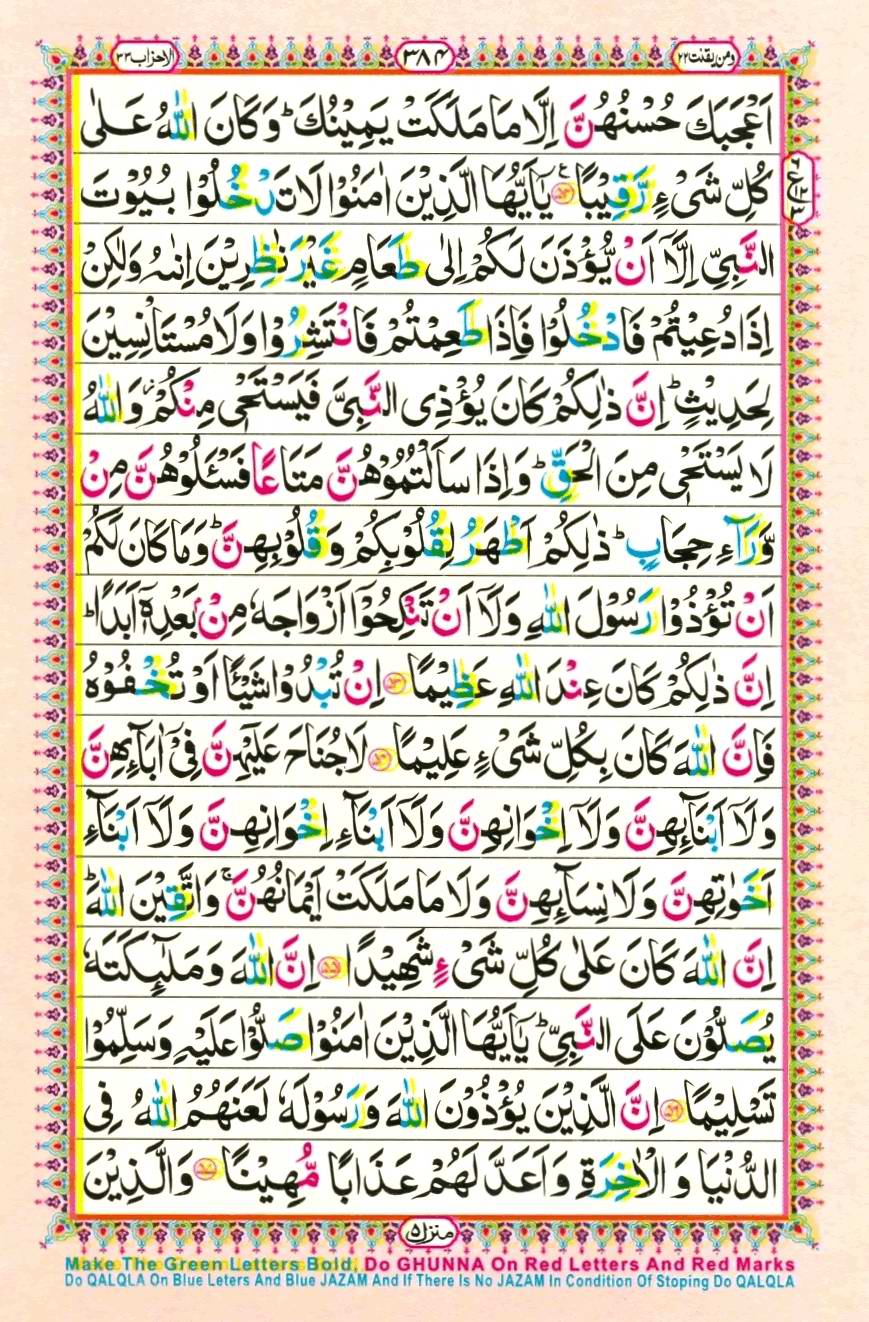 ومن یقنت ۲۲
۳۸۴
الاحزاب ۳۳
اَعْجَبَكَ حُسْنُهُنَّ اِلَّا مَا مَلَكَتْ يَمِيْنُكَ ؕ وَ كَانَ اللّٰهُ عَلٰى
كُلِّ شَیْءٍ رَّقِيْبًا ﴿۵۲﴾ يٰۤاَيُّهَا الَّذِيْنَ اٰمَنُوْا لَا تَدْخُلُوْا بُيُوْتَ
النَّبِیِّ اِلَّاۤ اَنْ يُّؤْذَنَ لَكُمْ اِلٰى طَعَامٍ غَيْرَ نٰظِرِيْنَ اِنٰىهُ وَلٰكِنْ
اِذَا دُعِيْتُمْ فَادْخُلُوْا فَاِذَا طَعِمْتُمْ فَانْتَشِرُوْا وَلَا مُسْتَاْنِسِيْنَ
لِحَدِيْثٍ ؕ اِنَّ ذٰلِكُمْ كَانَ يُؤْذِی النَّبِیَّ فَيَسْتَحْیٖ مِنْكُمْ ؗ وَاللّٰهُ
لَا يَسْتَحْیٖ مِنَ الْحَقِّ ؕ وَاِذَا سَاَلْتُمُوْهُنَّ مَتَاعًا فَسْـَٔلُوْهُنَّ مِنْ
وَّرَآءِ حِجَابٍ ؕ ذٰلِكُمْ اَطْهَرُ لِقُلُوْبِكُمْ وَقُلُوْبِهِنَّ ؕ وَمَا كَانَ لَكُمْ
اَنْ تُؤْذُوْا رَسُوْلَ اللّٰهِ وَلَاۤ اَنْ تَنْكِحُوْۤا اَزْوَاجَهٗ مِنْۢ بَعْدِهٖۤ اَبَدًا ؕ
اِنَّ ذٰلِكُمْ كَانَ عِنْدَ اللّٰهِ عَظِيْمًا ﴿۵۳﴾ اِنْ تُبْدُوْا شَيْـًٔا اَوْ تُخْفُوْهُ
فَاِنَّ اللّٰهَ كَانَ بِكُلِّ شَیْءٍ عَلِيْمًا ﴿۵۴﴾ لَا جُنَاحَ عَلَيْهِنَّ فِیْۤ اٰبَآئِهِنَّ
وَلَاۤ اَبْنَآئِهِنَّ وَلَاۤ اِخْوَانِهِنَّ وَلَاۤ اَبْنَآءِ اِخْوَانِهِنَّ وَلَاۤ اَبْنَآءِ
اَخَوٰتِهِنَّ وَلَا نِسَآئِهِنَّ وَلَا مَا مَلَكَتْ اَيْمَانُهُنَّ ۚ وَاتَّقِيْنَ اللّٰهَ ؕ
اِنَّ اللّٰهَ كَانَ عَلٰى كُلِّ شَیْءٍ شَهِيْدًا ﴿۵۵﴾ اِنَّ اللّٰهَ وَمَلٰٓئِكَتَهٗ
يُصَلُّوْنَ عَلَى النَّبِیِّ ؕ يٰۤاَيُّهَا الَّذِيْنَ اٰمَنُوْا صَلُّوْا عَلَيْهِ وَسَلِّمُوْا
تَسْلِيْمًا ﴿۵۶﴾ اِنَّ الَّذِيْنَ يُؤْذُوْنَ اللّٰهَ وَرَسُوْلَهٗ لَعَنَهُمُ اللّٰهُ فِی
الدُّنْيَا وَ الْاٰخِرَةِ وَاَعَدَّ لَهُمْ عَذَابًا مُّهِيْنًا ﴿۵۷﴾ وَالَّذِيْنَ
منزل ۵
Make The Green Letters Bold, Do GHUNNA On Red Letters And Red Marks
Do QALQLA On Blue Leters And Blue JAZAM And If There Is No JAZAM In Condition Of Stoping Do QALQLA